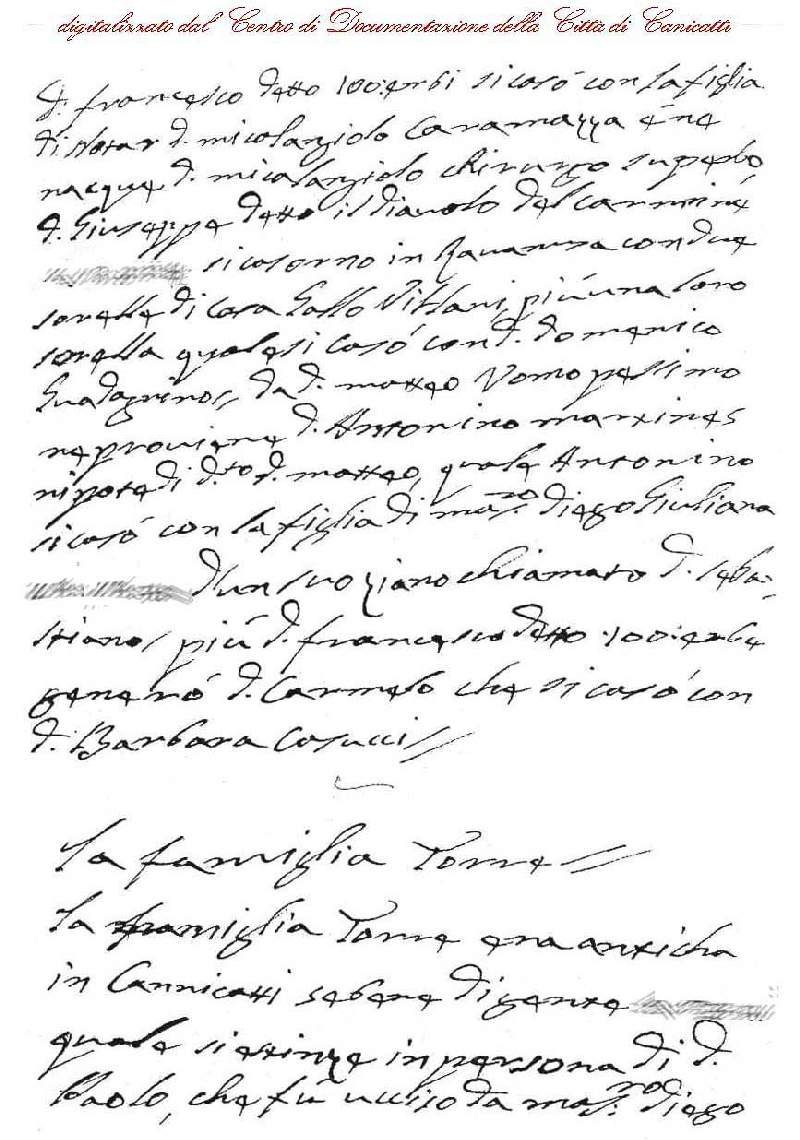 digitalizzato dal Centro di Documentazione della Città di Canicattì
d. francesco detto 100:erbi si casò con la figlia
di Notar d. micolangiolo Caramazza é ne
nacque d. micolangiolo chirurgo superbo,
d. Giuseppe detto il diavolo del Carmine
si casorno in Ravanusa con due
sorelle di casa Gallo Villani, più una loro
sorella quale si casó con d. domenico
Guadagnino// da d. matteo Uomo pessimo
ne proviene d. Antonino martines
nipote di d.to d. matteo, quale Antonino
si casò con la figlia di mas.ro diego Giuliana
d'un suo ziano chiamato d. seba=
stiano/ più d. francesco detto 100:erbe
generó d. Carmelo che si casó con
d. Barbara Casucci//
La famiglia Torre//
La famiglia Torre era anticha
in Cannicatti sebene di gente
quale si estinze in persona di d.
Paolo, che fù ucciso da mas.ro diego